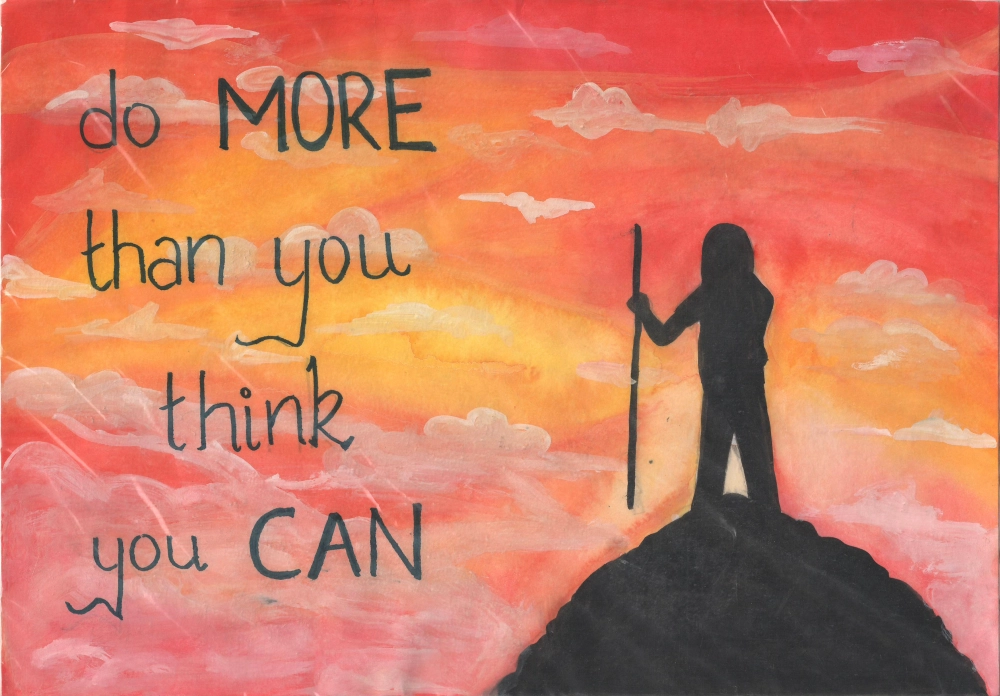 do MORE
than you
think
you CAN